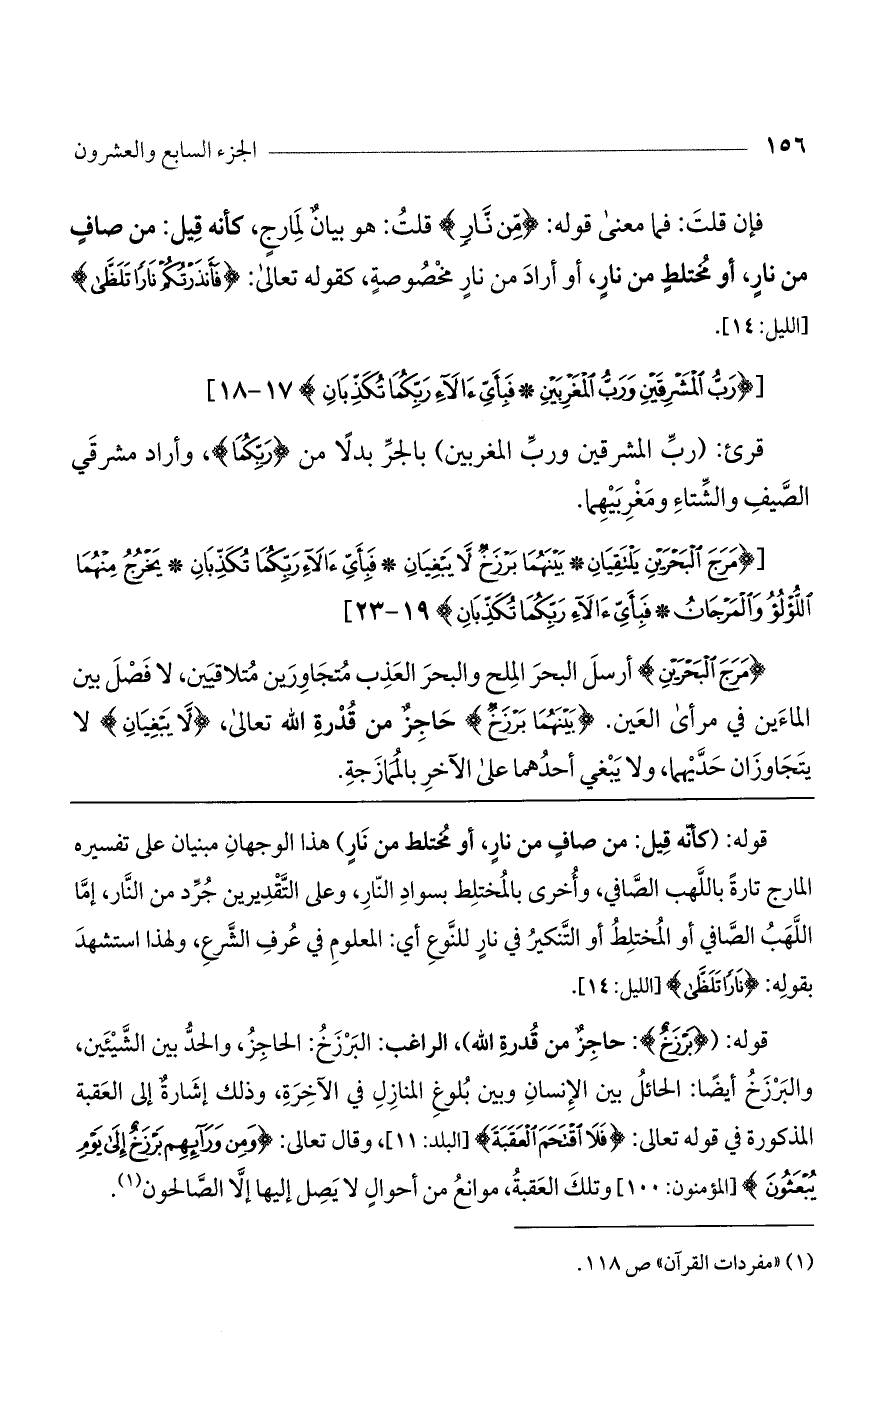 ١٥٦ الجزء السابع والعشرون
فإن قلتَ: فما معنىٰ قوله: ﴿مِّن نَّارٍ﴾ قلتُ: هو بيانٌ لِمارجٍ، كأنه قِيل: من صافٍ
من نارٍ، أو مُختلطٍ من نارٍ، أو أرادَ من نارٍ مخْصُوصةٍ، كقوله تعالىٰ: ﴿فَأَنذَرْتُكُمْ نَارًا تَلَظَّىٰ﴾
[الليل: ١٤].
[﴿رَبُّ ٱلْمَشْرِقَيْنِ وَرَبُّ ٱلْمَغْرِبَيْنِ * فَبِأَىِّ ءَالَآءِ رَبِّكُمَا تُكَذِّبَانِ﴾ ١٧-١٨]
قرئ: (ربِّ المشرقين وربِّ المغربين) بالجرِّ بدلًا من ﴿رَبِّكُمَا﴾، وأراد مشرقَي
الصَّيفِ والشِّتاءِ ومَغْرِبَيْهِما.
[﴿مَرَجَ ٱلْبَحْرَيْنِ يَلْتَقِيَانِ * بَيْنَهُمَا بَرْزَخٌ لَّا يَبْغِيَانِ * فَبِأَىِّ ءَالَآءِ رَبِّكُمَا تُكَذِّبَانِ * يَخْرُجُ مِنْهُمَا
ٱللُّؤْلُؤُ وَٱلْمَرْجَانُ * فَبِأَىِّ ءَالَآءِ رَبِّكُمَا تُكَذِّبَانِ﴾ ١٩-٢٣]
﴿مَرَجَ ٱلْبَحْرَيْنِ﴾ أرسلَ البحرَ المِلح والبحرَ العَذِب مُتجَاوِرَين مُتلاقيَين، لا فَصْلَ بين
الماءَين في مرأىٰ العَين. ﴿بَيْنَهُمَا بَرْزَخٌ﴾ حَاجِزٌ من قُدْرةِ الله تعالىٰ، ﴿لَّا يَبْغِيَانِ﴾ لا
يتَجَاوزَان حَدَّيْهِما، ولا يَبْغي أحدُهما علىٰ الآخرِ بالمُمازَجةِ.
قوله: (كأنّه قِيل: من صافٍ من نارٍ، أو مُختلط من نَارٍ) هذا الوجهانِ مبنيان على تفسيره
المارج تارةً باللَّهب الصَّافي، وأُخرى بالمُختلِط بسوادِ النّارِ، وعلى التَّقْدِيرين جُرِّد من النَّار، إمَّا
اللَّهَبُ الصَّافي أو المُختلِطُ أو التَّنكيرُ في نارٍ للنَّوعِ أي: المعلومِ في عُرفِ الشَّرعِ، ولهذا استشهدَ
بقولِه: ﴿نَارًا تَلَظَّىٰ﴾ [الليل: ١٤].
قوله: (﴿بَرْزَخٌ﴾: حاجِزٌ من قُدرةِ الله)، الراغب: البَرْزَخُ: الحاجِزُ، والحدُّ بين الشَّيْئَين،
والبَرْزَخُ أيضًا: الحائلُ بين الإنسانِ وبين بُلوغِ المنازلِ في الآخِرَةِ، وذلك إشَارةٌ إلى العَقبة
المذكورة في قوله تعالى: ﴿فَلَا ٱقْتَحَمَ ٱلْعَقَبَةَ﴾ [البلد: ١١]، وقال تعالى: ﴿وَمِن وَرَآئِهِم بَرْزَخٌ إِلَىٰ يَوْمِ
يُبْعَثُونَ﴾ [المؤمنون: ١٠٠] وتلكَ العَقبةُ، موانعُ من أحوالٍ لا يَصِل إليها إلَّا الصَّالحون(١).
(١) «مفردات القرآن» ص ١١٨.